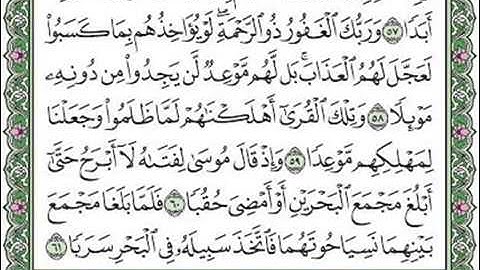 أَبَدًا ٥٧ وَرَبُّكَ ٱلْغَفُورُ ذُو ٱلرَّحْمَةِ ۖ لَوْ يُؤَاخِذُهُم بِمَا كَسَبُوا۟
لَعَجَّلَ لَهُمُ ٱلْعَذَابَ ۚ بَل لَّهُم مَّوْعِدٌ لَّن يَجِدُوا۟ مِن دُونِهِۦ
مَوْئِلًا ٥٨ وَتِلْكَ ٱلْقُرَىٰٓ أَهْلَكْنَٰهُمْ لَمَّا ظَلَمُوا۟ وَجَعَلْنَا
لِمَهْلِكِهِم مَّوْعِدًا ٥٩ وَإِذْ قَالَ مُوسَىٰ لِفَتَىٰهُ لَآ أَبْرَحُ حَتَّىٰٓ
أَبْلُغَ مَجْمَعَ ٱلْبَحْرَيْنِ أَوْ أَمْضِىَ حُقُبًا ٦٠ فَلَمَّا بَلَغَا مَجْمَعَ
بَيْنِهِمَا نَسِيَا حُوتَهُمَا فَٱتَّخَذَ سَبِيلَهُۥ فِى ٱلْبَحْرِ سَرَبًا ٦١